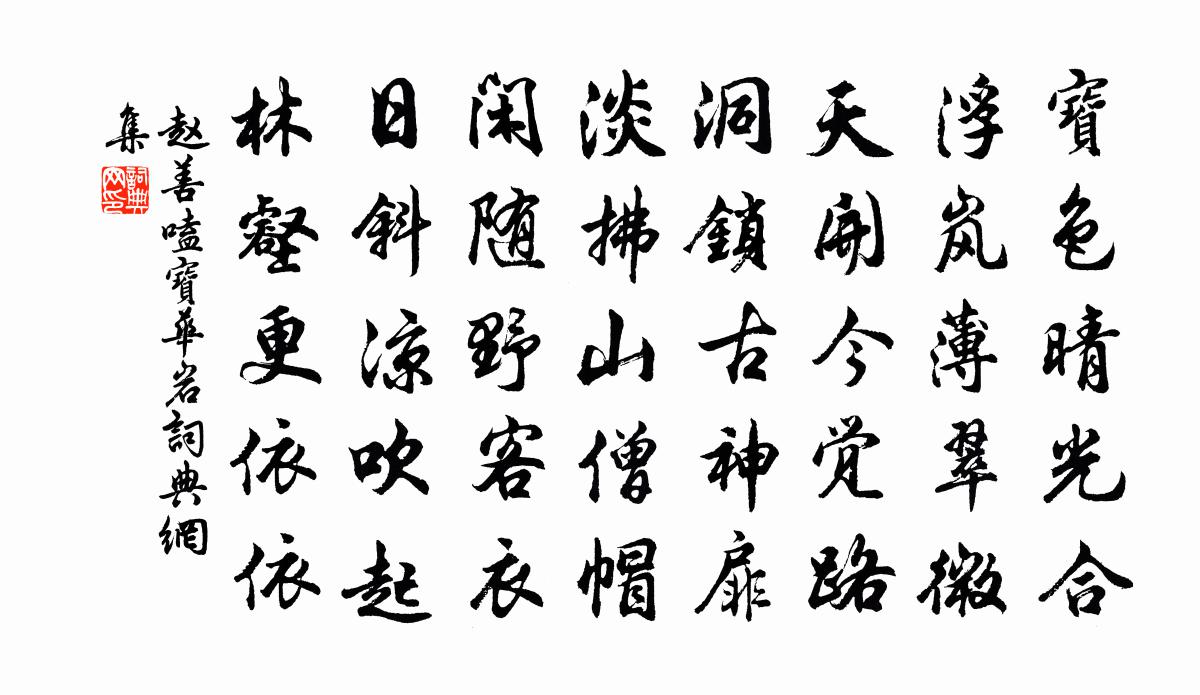 寶色晴光合
浮岚薄翠微
天開今觉路
洞鎖古神扉
淡拂山僧帽
闲随野客衣
日斜凉吹起
林壑更依依
赵善嗑寶華岩詞典網
集
詞典網印